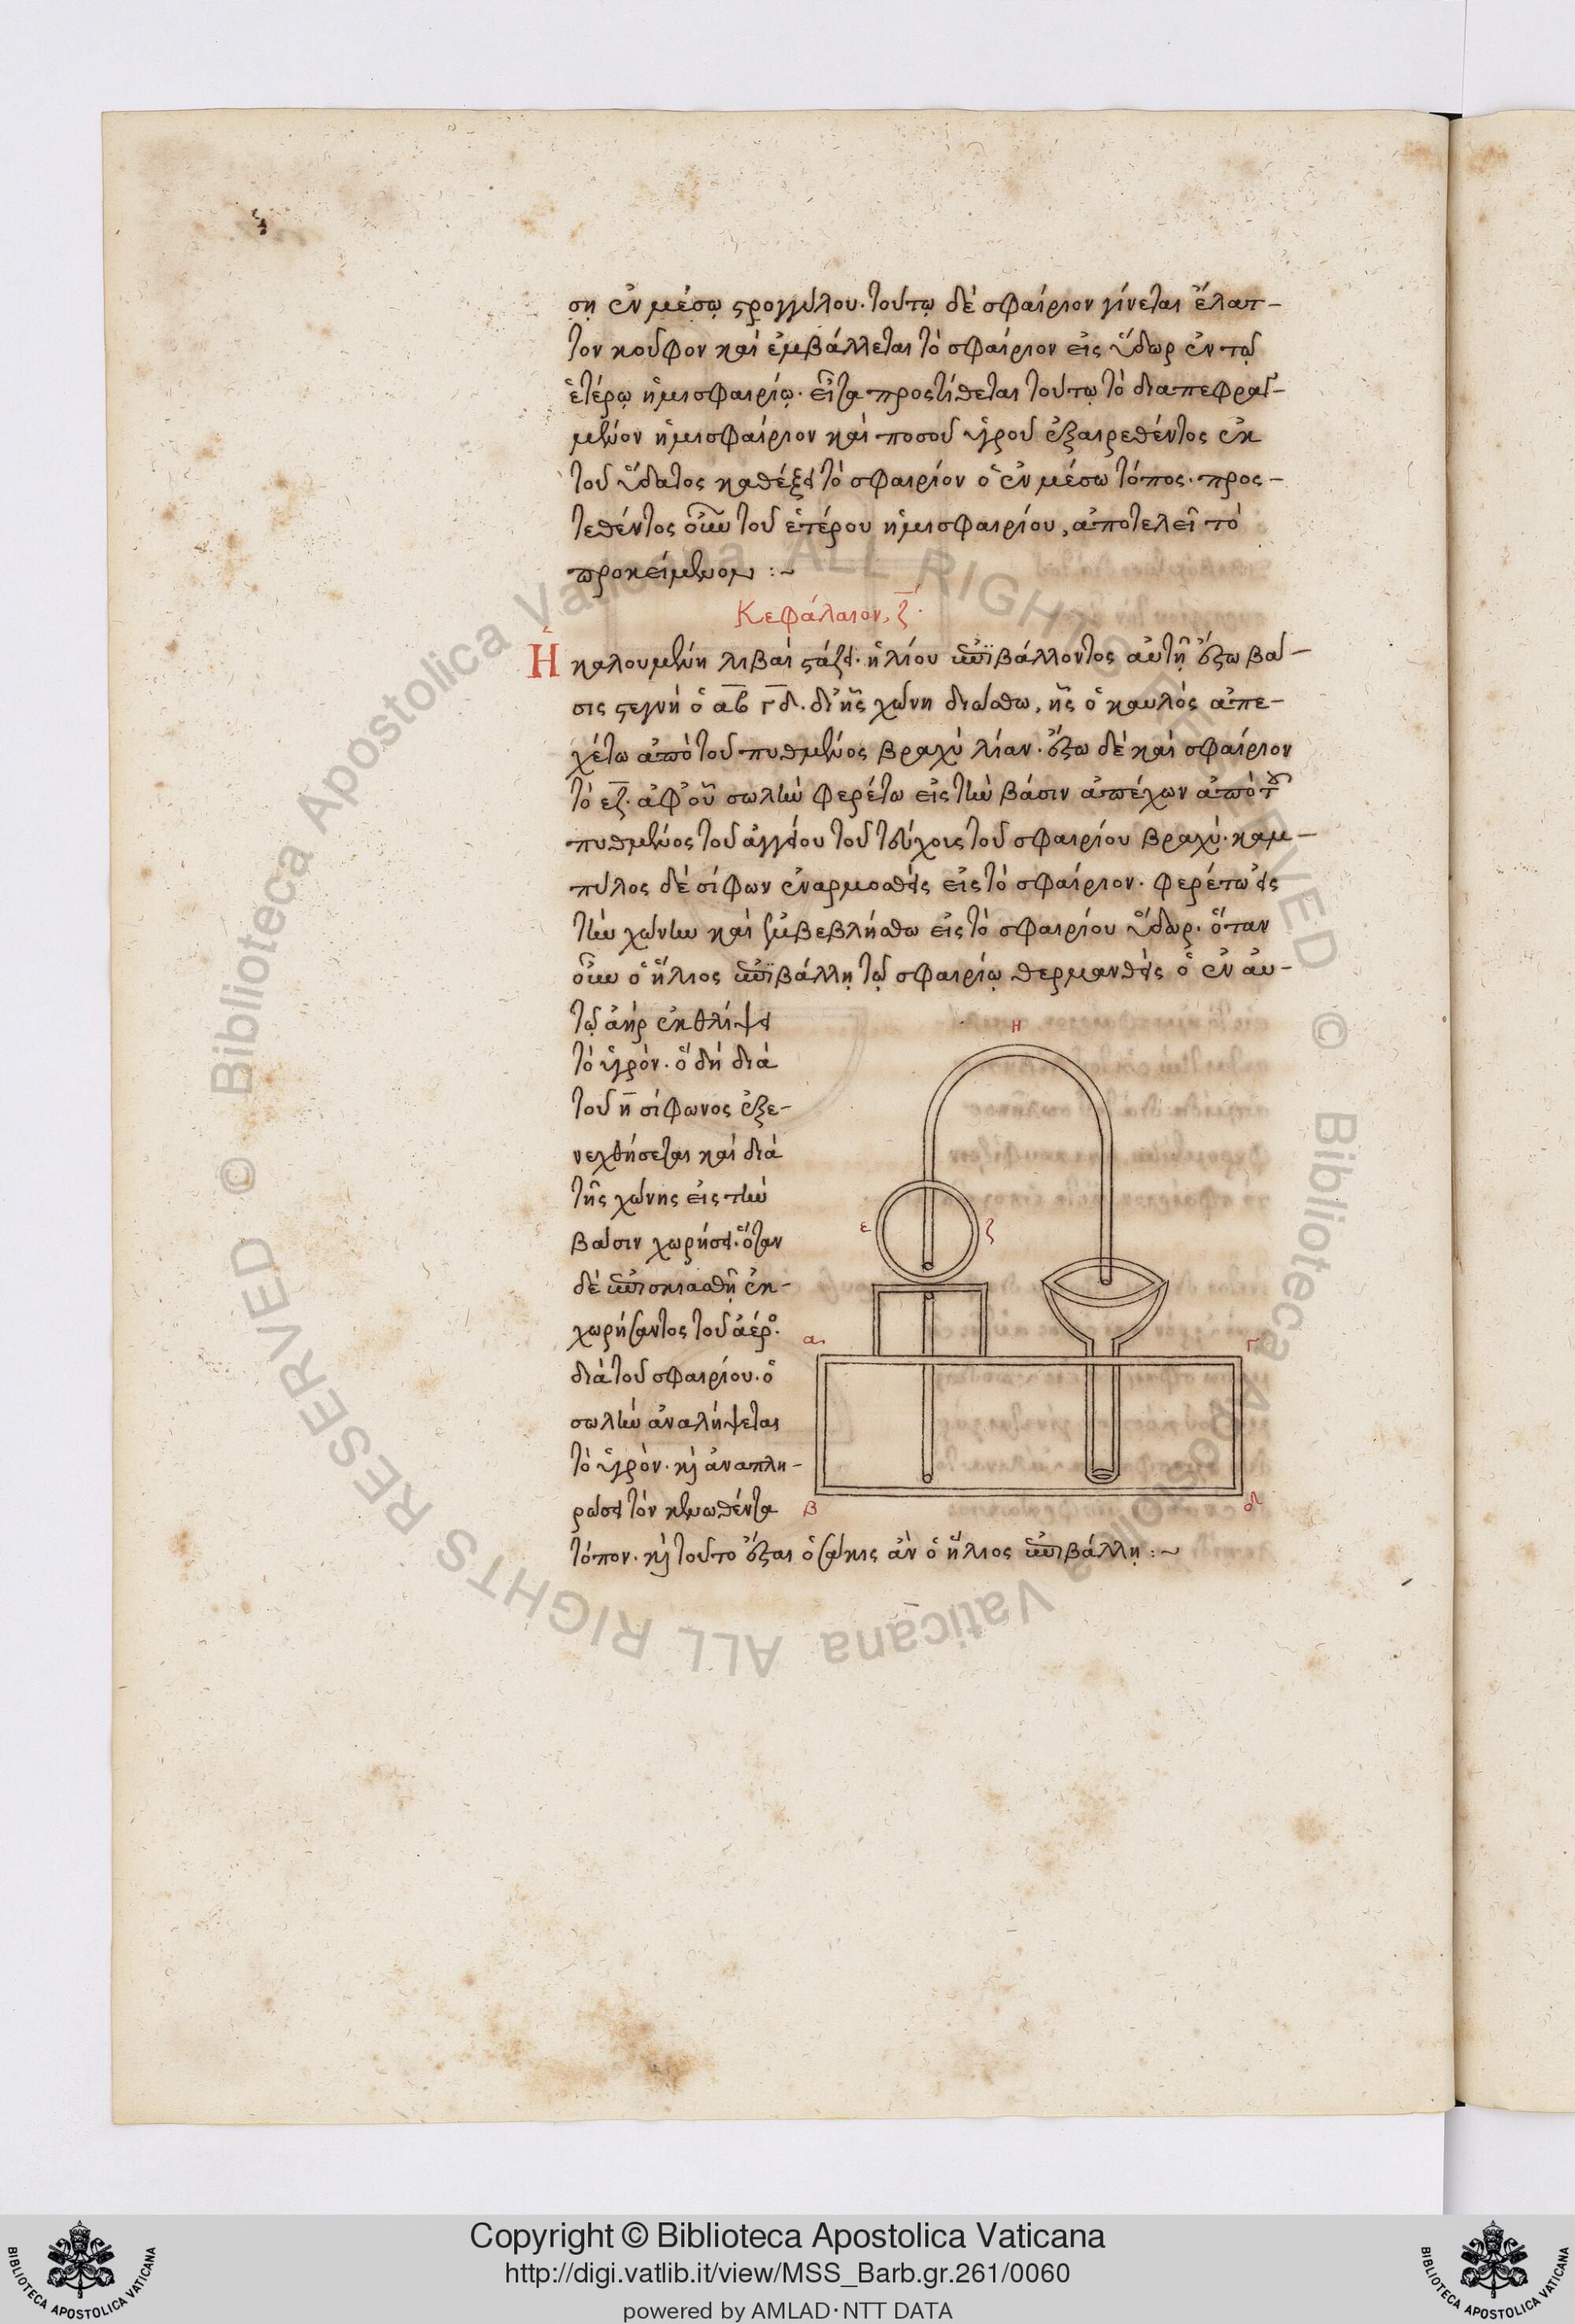 ση ἐν μέσῳ στρογγύλου. τούτῳ δὲ σφαίριον γίνεται ἔλατ-
τον κοῦφον καὶ ἐμβάλλεται τὸ σφαίριον εἰς ὕδωρ ἐν τῷ
ἑτέρῳ ἡμισφαιρίῳ. εἶτα προστίθεται τούτῳ τὸ διαπεφραγ-
μένον ἡμισφαίριον καὶ ποσοῦ ὑγροῦ ἐξαιρεθέντος ἐκ
τοῦ ὕδατος καθέξει τὸ σφαιρίον ὁ ἐν μέσω τόπος. προς-
τεθέντος οὖν τοῦ ἑτέρου ἡμισφαιρίου, ἀποτελεῖ τὸ
προκείμενον :~
Κεφάλαιον, ζ.
Ἡ καλουμένη λιβαὶ στάζει. ἡλίου ἐπϊβάλλοντος αὐτῇ ἔστω βά-
σις στεγνὴ ὁ αβ γδ. δι' ἧς χώνη διώσθω, ἧς ὁ καυλὸς ἀπε-
χέτω ἀπὸ τοῦ πυθμένος βραχὺ λίαν. ἔστω δὲ καὶ σφαίριον
τὸ εζ. ἀφ' οὗ σωλὴν φερέτω εἰς τὴν βάσιν ἀπέχων ἀπὸ τοῦ
πυθμένος τοῦ ἀγγείου τοῦ τεύχους τοῦ σφαιρίου βραχύ. καμ-
πύλος δὲ σίφων ἐναρμοσθεὶς εἰς τὸ σφαίριον. φερέτω εἰς
τὴν χώνην καὶ ἐμβεβλήσθω εἰς τὸ σφαιρίου ὕδωρ. ὅταν
οὖν ὁ ἥλιος ἐπϊβάλλῃ τῷ σφαιρίῳ θερμανθεὶς ὁ ἐν αὐ-
τῷ ἀὴρ ἐκθλίψει
τὸ ὑγρόν. ὃ δὴ διὰ
τοῦ η σίφωνος ἐξε-
νεχθήσεται καὶ διὰ
τῆς χώνης εἰς τὴν
βάσιν χωρήσει. ὅταν
δὲ ἐπισκιασθῇ ἐκ-
χωρήσαντος τοῦ ἀέρος
διὰ τοῦ σφαιρίου. ὁ
σωλὴν ἀναλήψεται
τὸ ὑγρὸν. καὶ ἀναπλη-
ρώσει τὸν κενωθέντα
τόπον. καὶ τοῦτο ἔσται ὁσάκις ἂν ὁ ἥλιος ἐπιβάλλῃ :~
η
ε
ζ
α
γ
β
δ
Copyright © Biblioteca Apostolica Vaticana
http://digi.vatlib.it/view/MSS_Barb.gr.261/0060
powered by AMLAD · NTT DATA
BIBLIOTECA APOSTOLICA VATICANA
BIBLIOTECA APOSTOLICA VATICANA
© Biblioteca Apostolica Vaticana ALL RIGHTS RESERVED
© Biblioteca Apostolica Vaticana ALL RIGHTS RESERVED